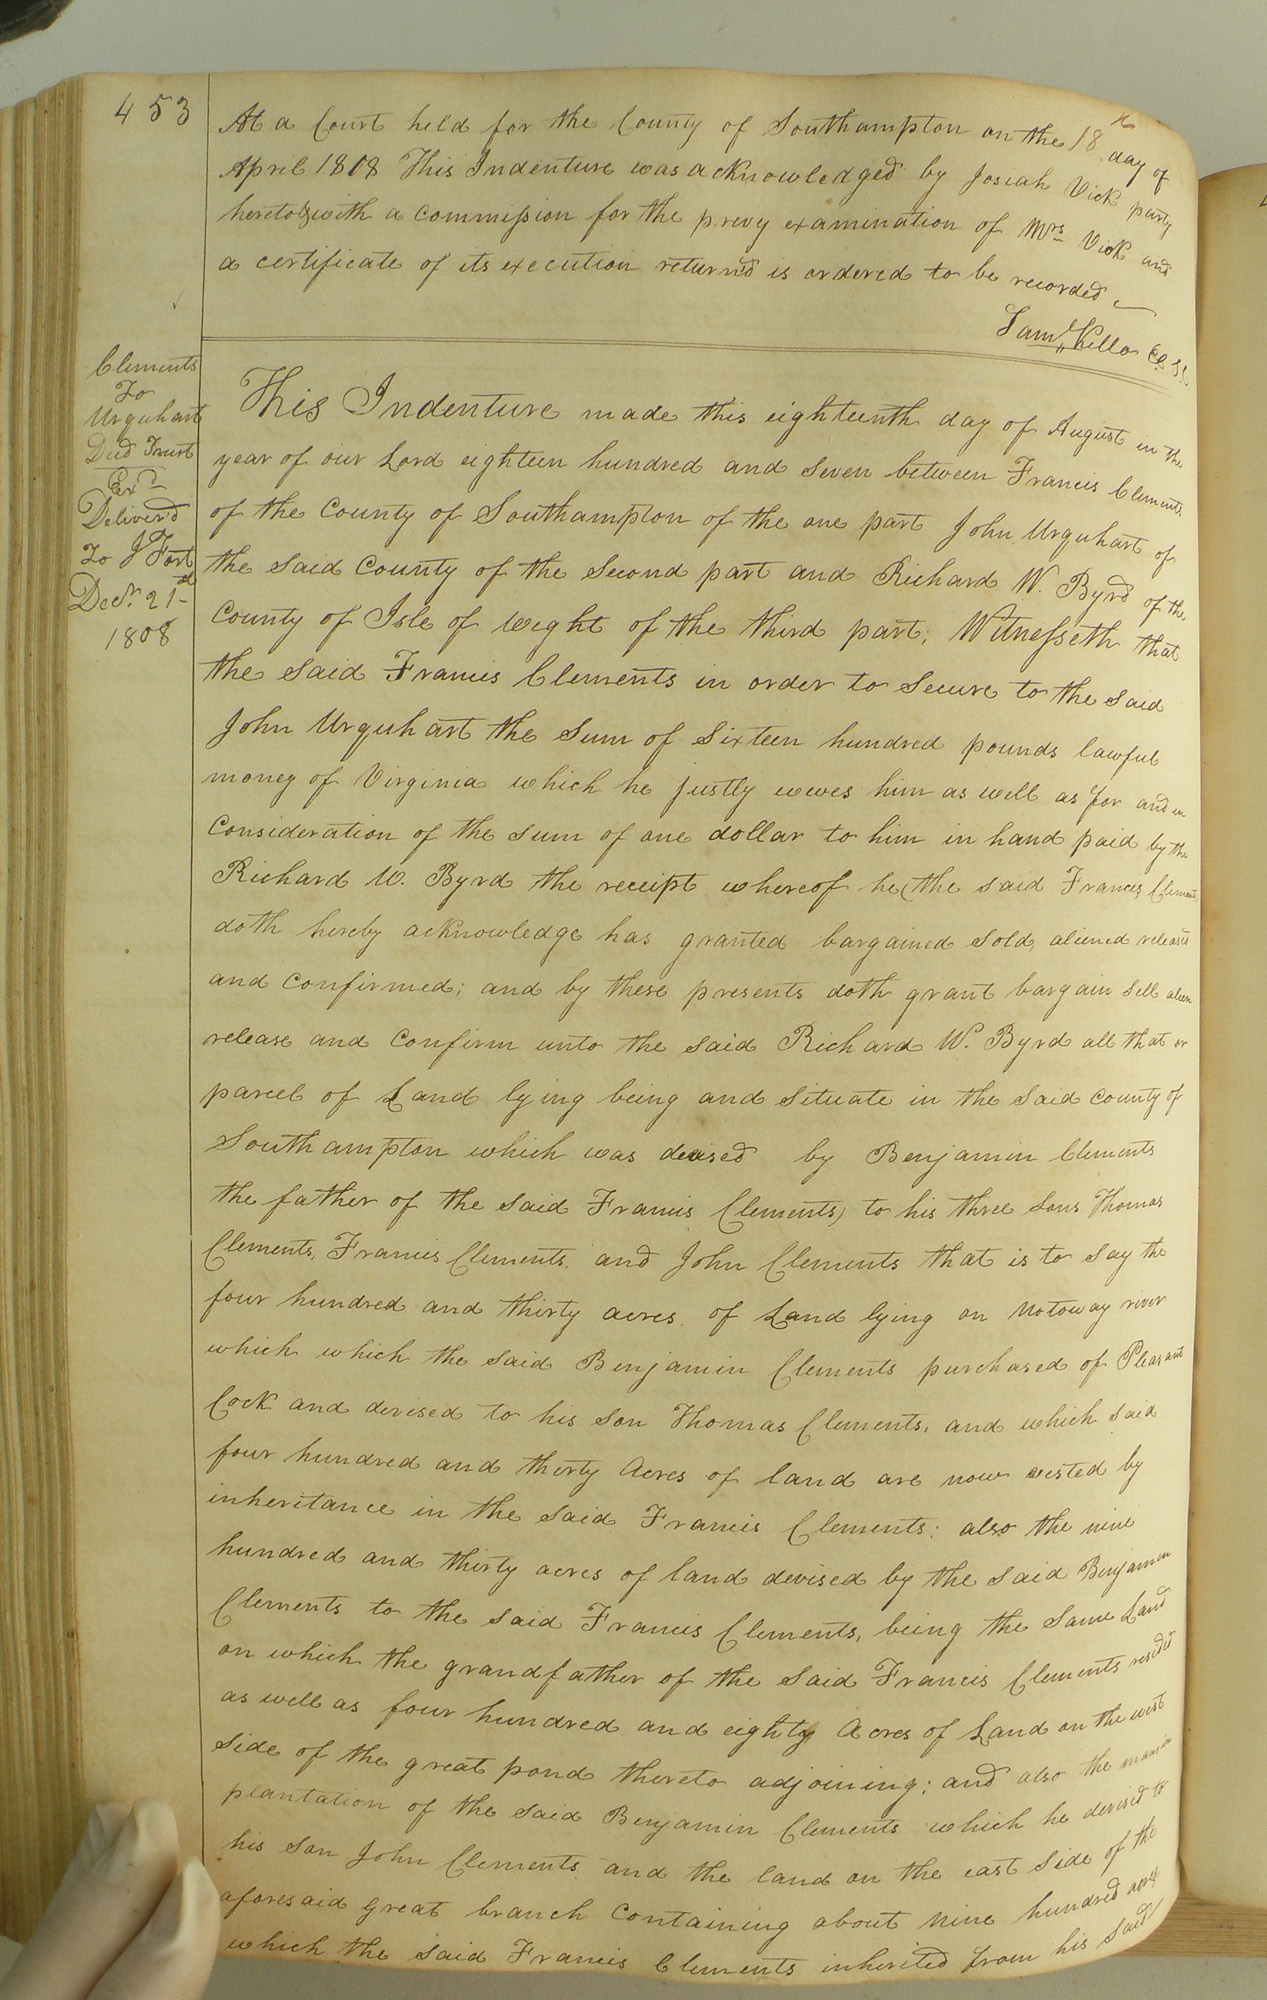 453
At a Court held for the County of Southampton on the 18th day of
April 1808 This Indenture was acknowledged by Josiah Vick party
hereto & with a commission for the prevy examination of Mrs Vick and
a certificate of its execution returnd is ordered to be recorded
Saml Kello Cl. S.C.
Clements
To
Urquhart
Deed Trust
Exd
Deliver'd
to J Fort
Decr. 21st
1808
This Indenture made this eighteenth day of August in the
year of our Lord eighteen hundred and seven between Francis Clements
of the County of Southampton of the one part John Urquhart of
the said County of the second part and Richard W. Byrd of the
County of Isle of Weght of the third part; Witnesseth that
the said Francis Clements in order to secure to the said
John Urquhart the sum of sixteen hundred pounds lawful
money of Virginia which he justly owes him as well as for and in
consideration of the sum of one dollar to him in hand paid by the
Richard W. Byrd the receipt whereof he (the said Francis Clements
doth hereby acknowledge has granted bargained sold, aliened released
and confirmed; and by these presents doth grant bargain sell alien
release and confirm unto the said Richard W. Byrd all that or
parcel of Land lying being and situate in the said County of
Southampton which was devised by Benjamin Clements
the father of the said Francis Clements) to his three sons Thomas
Clements, Francis Clements. and John Clements that is to say the
four hundred and thirty acres. of Land lying on Notoway river
which which the said Benjamin Clements purchased of Pleasant
Cock and devised to his son Thomas Clements, and which said
four hundred and thirty Acres of land are now vested by
inheritance in the said Francis Clements; also the nine
hundred and thirty acres of land devised by the said Benjamin
Clements to the said Francis Clements, being the same Land
on which the grandfather of the said Francis Clements resided
as well as four hundred and eighty Acres of Land on the west
side of the great pond thereto adjoining; and also the mansion
plantation of the said Benjamin Clements which he devised to
his son John Clements and the land on the east side of the
aforesaid great branch containing about nine hundred acres
which the said Francis Clements inherited from his said